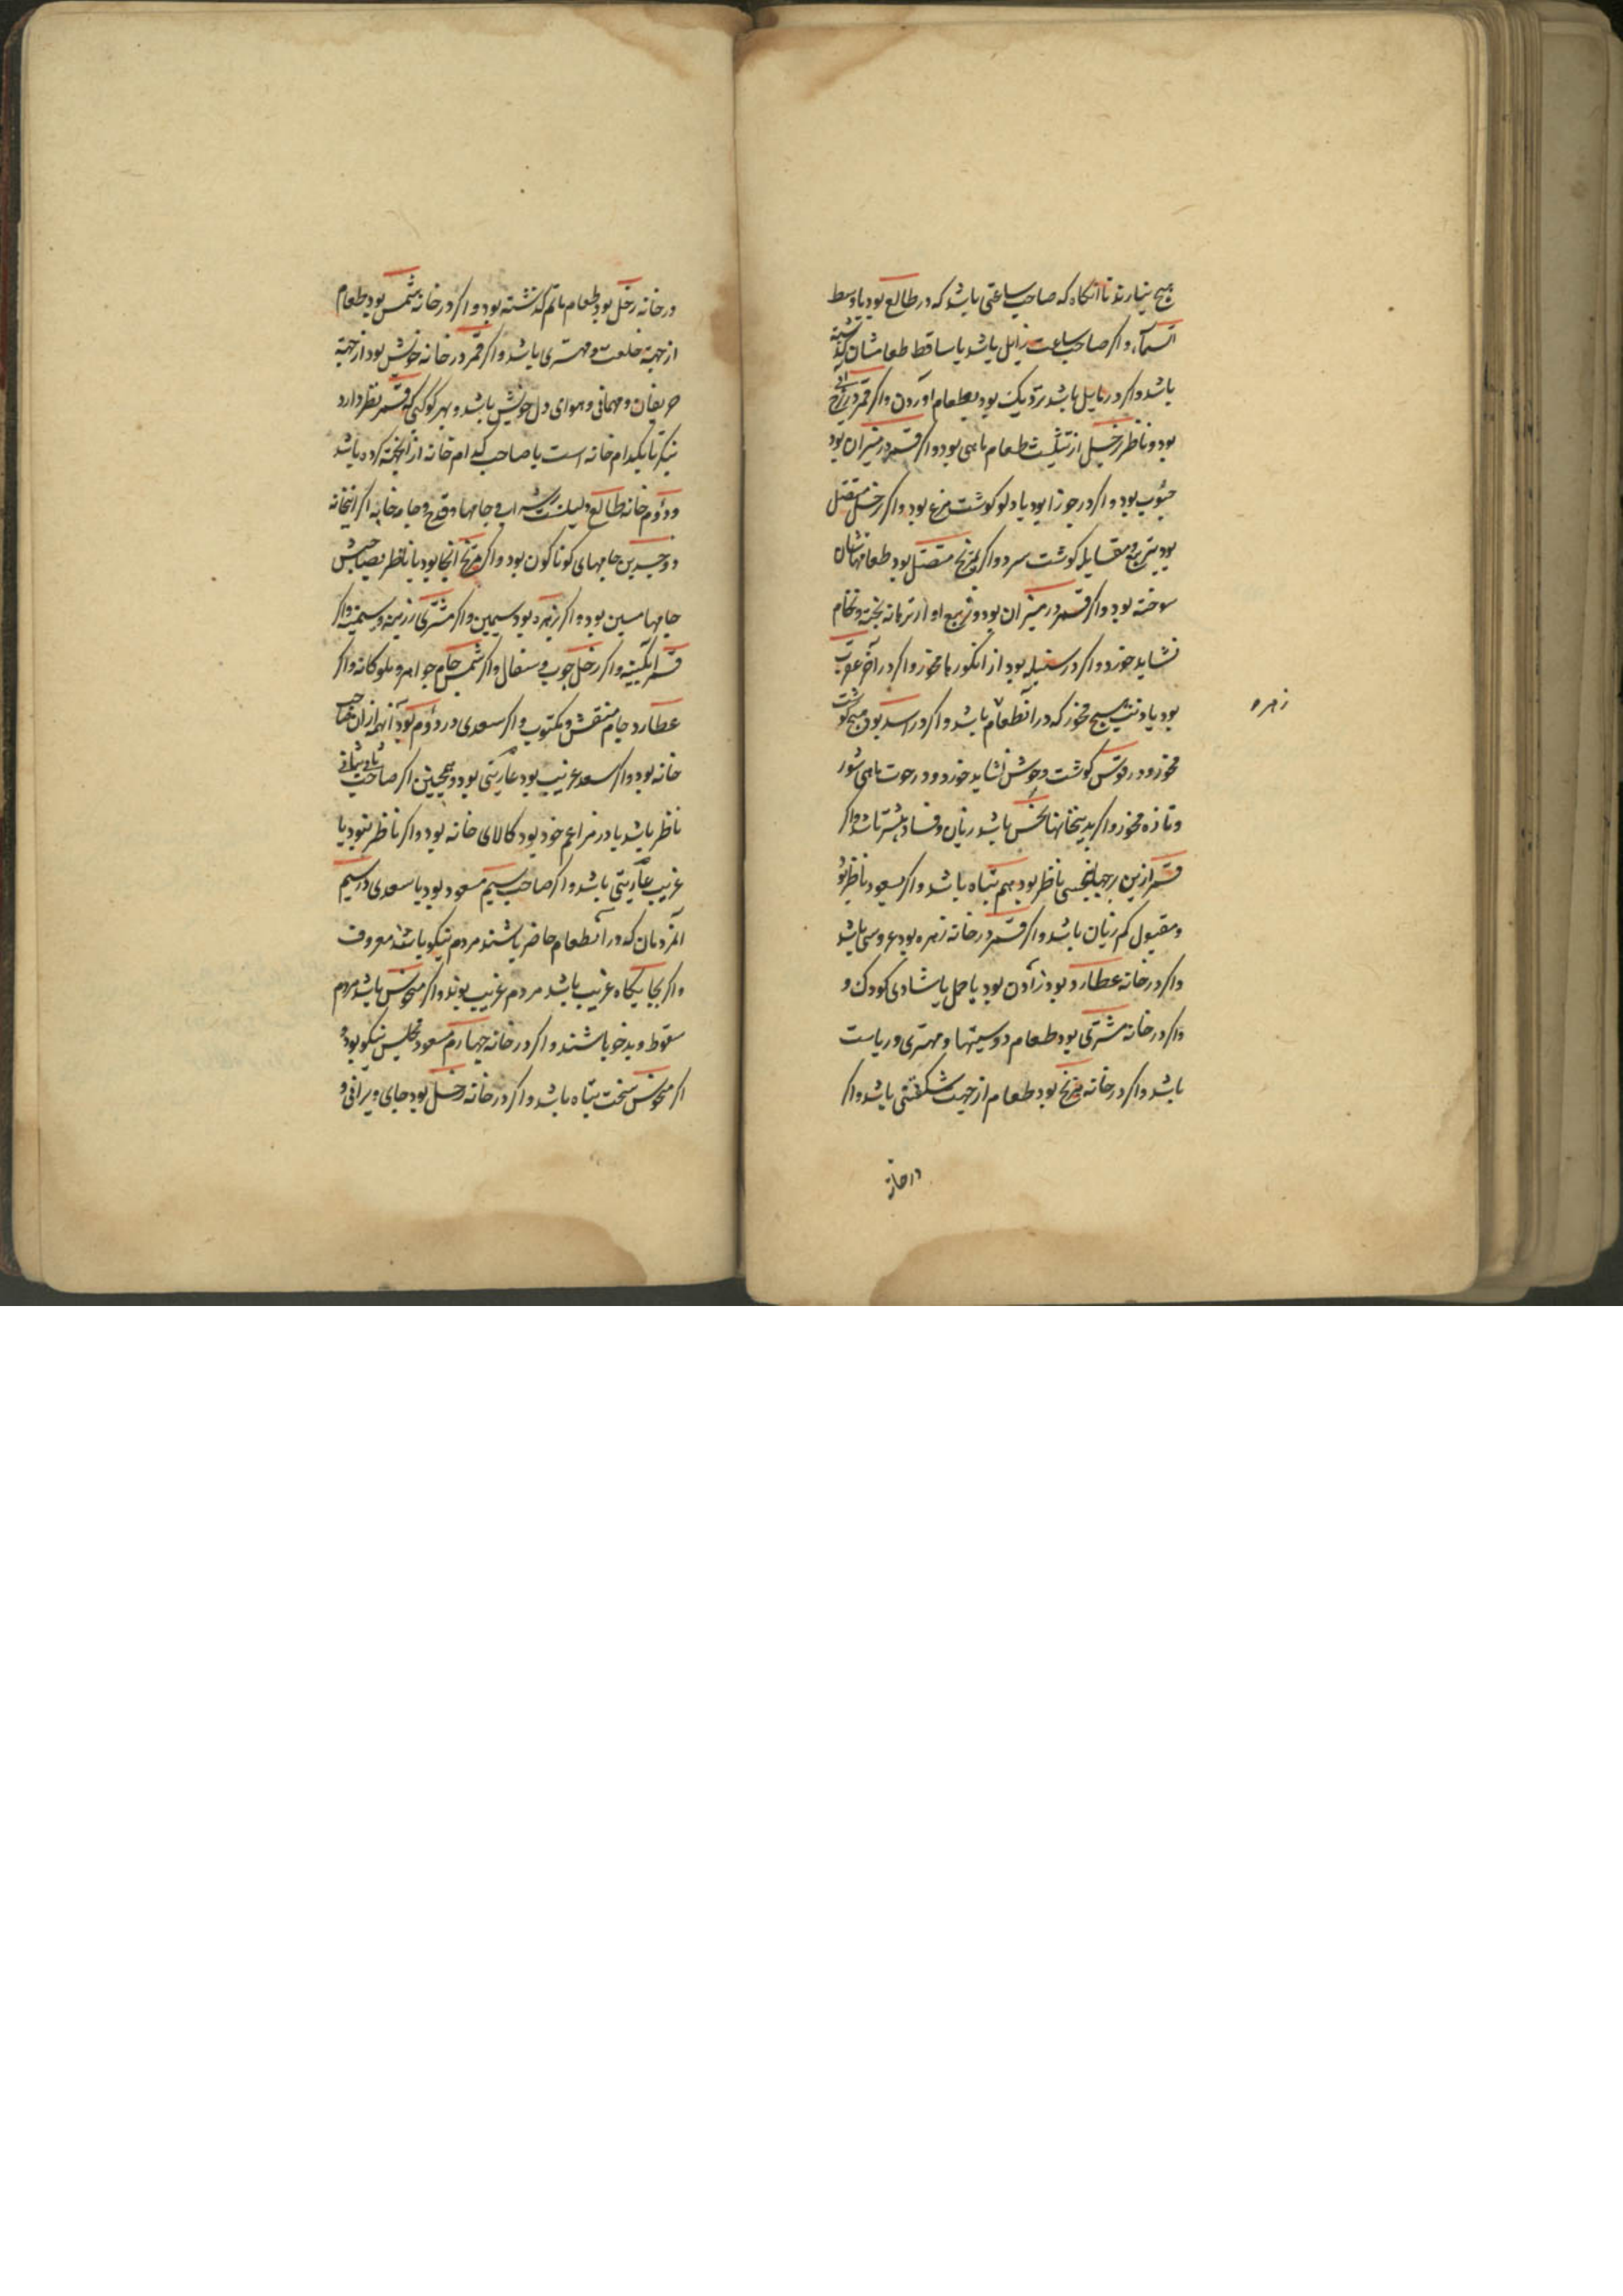 هیچ نیارند تا آنگاه که صاحب ساعتی باشد که در طالع بود یا وسط
السماء و اگر صاحب ساعت زایل باشد یا ساقط طعامشان گذشته
باشد و اگر در مایل باشد نزدیک بود بطعام آوردن و اگر قمر در برج آبی
بود و ناظر زحل از تثلیث طعام ماهی بود و اگر قمر در میزان بود
حبوب بود و اگر در جوزا بود یا دلو گوشت مرغ بود و اگر زحل متصل
بود بتربیع و مقابله گوشت سرد و اگر بمریخ متصل بود طعامهاشان
سوخته بود و اگر قمر در میزان بود و تربیع او از تره‌انه پخته و خام
نشاید خورد و اگر در سنبله بود از انگورها مخور و اگر در آخر عقرب
بود یا در هیچ مخور که در آنطعام باشد و اگر در اسد بود هیچ گوشت
مخور و در قوس گوشت وحوش نشاید خورد و در حوت ماهی شور
و تازه مخور و اگر بدینخانها نحس باشد زیان و فساد بیشتر باشد و اگر
قمر ازین برجها بنحسی ناظر بود هم تباه باشد و اگر بسعود ناظر بود
و مقبول کم زیان باشد و اگر قمر در خانه زهره بود عروسی باشد
و اگر در خانه عطارد بود زادن بود یا حمل یا شادی کودک و
و اگر در خانه مشتری بود طعام دوستیها و مهتری و ریاست
باشد و اگر در خانه مریخ بود طعام از جهت شگفتی باشد و اگر
زهره
در خانه
در خانه زحل بود طعام ماتم گذشته بود و اگر در خانه شمس بود طعام
از جهة خلعت و مهتری باشد و اگر قمر در خانه خویش بود از جهة
حریفان و مهمانی و هوای دل خویش باشد و بهر کوکبی که قمر نظر دارد
بنگر تا بکدام خانه است یا صاحب کدام خانه از آنجهة کرده باشد
و دوم خانه طالع دلیلست بر شراب و جامها و قدح و جامه خانه اگر اینخانه
ذو جسدین جامهای گوناگون بود و اگر مریخ آنجا بود یا ناظر بصاحبش
جامها مسین بود و اگر زهره بود سیمین و اگر مشتری زرین و سیمین و اگر
قمر آبگینه و اگر زحل چوب و سفال و اگر شمس جام جواهر و ملوکانه و اگر
عطارد جام منقش و مکتوب و اگر سعدی در دوم بود آنهمه از آن صاحب
خانه بود و اگر سعد غریب بود عاریتی بود و همچنین اگر صاحب ثانی بثانی
ناظر باشد یا در مزاعم خود بود کالای خانه بود و اگر ناظر نبود یا
غریب عاریتی باشد و اگر صاحب سیم مسعود بود یا سعدی در سیم
المردمان که در آنطعام حاضر باشند مردم نیکو باشند معروف
و اگر بجایگاه غریب باشد مردم غریب بوند و اگر منحوس باشد مردم
سقوط و بدخو باشند و اگر در خانه چهارم مسعود مجلس نیکو بود و
اگر منحوس سخت تباه باشد و اگر در خانه زحل بود جای ویرانی و